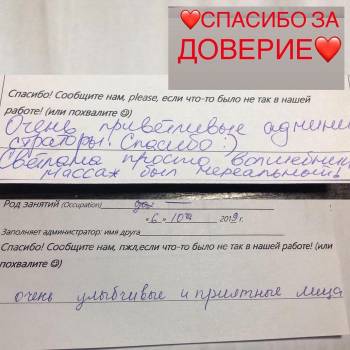 ❤️СПАСИБО ЗА
ДОВЕРИЕ❤️
Спасибо! Сообщите нам, please, если что-то было не так в нашей
работе! (или похвалите ☺)
Очень приветливые админи
страторы! Спасибо :)
Светлана просто волшебник
массаж был нереальный
Род занятий (Occupation)
«6» 10 2019 г.
Заполняет администратор: имя друга
Спасибо! Сообщите нам, пжл,если что-то было не так в нашей работе! (или
похвалите ☺)
очень улыбчивые и приятные лица